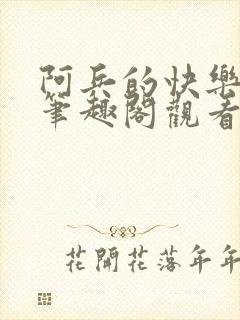 阿兵的快樂
筆趣閣觀看
花開花落年年